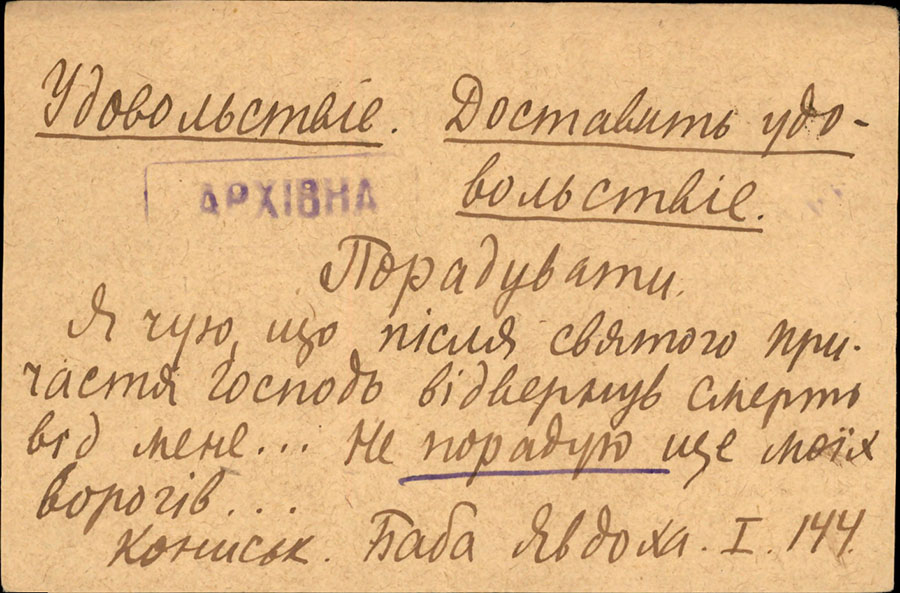 Удовольствіе. Доставить удо-
вольствіе.
АРХІВНА
Порадувати.
Я чую, що після святого при-
частя Господь відвернув смерть
від мене... Не порадую ще моїх
ворогів...
Кониськ. Баба Явдоха. I. 144.